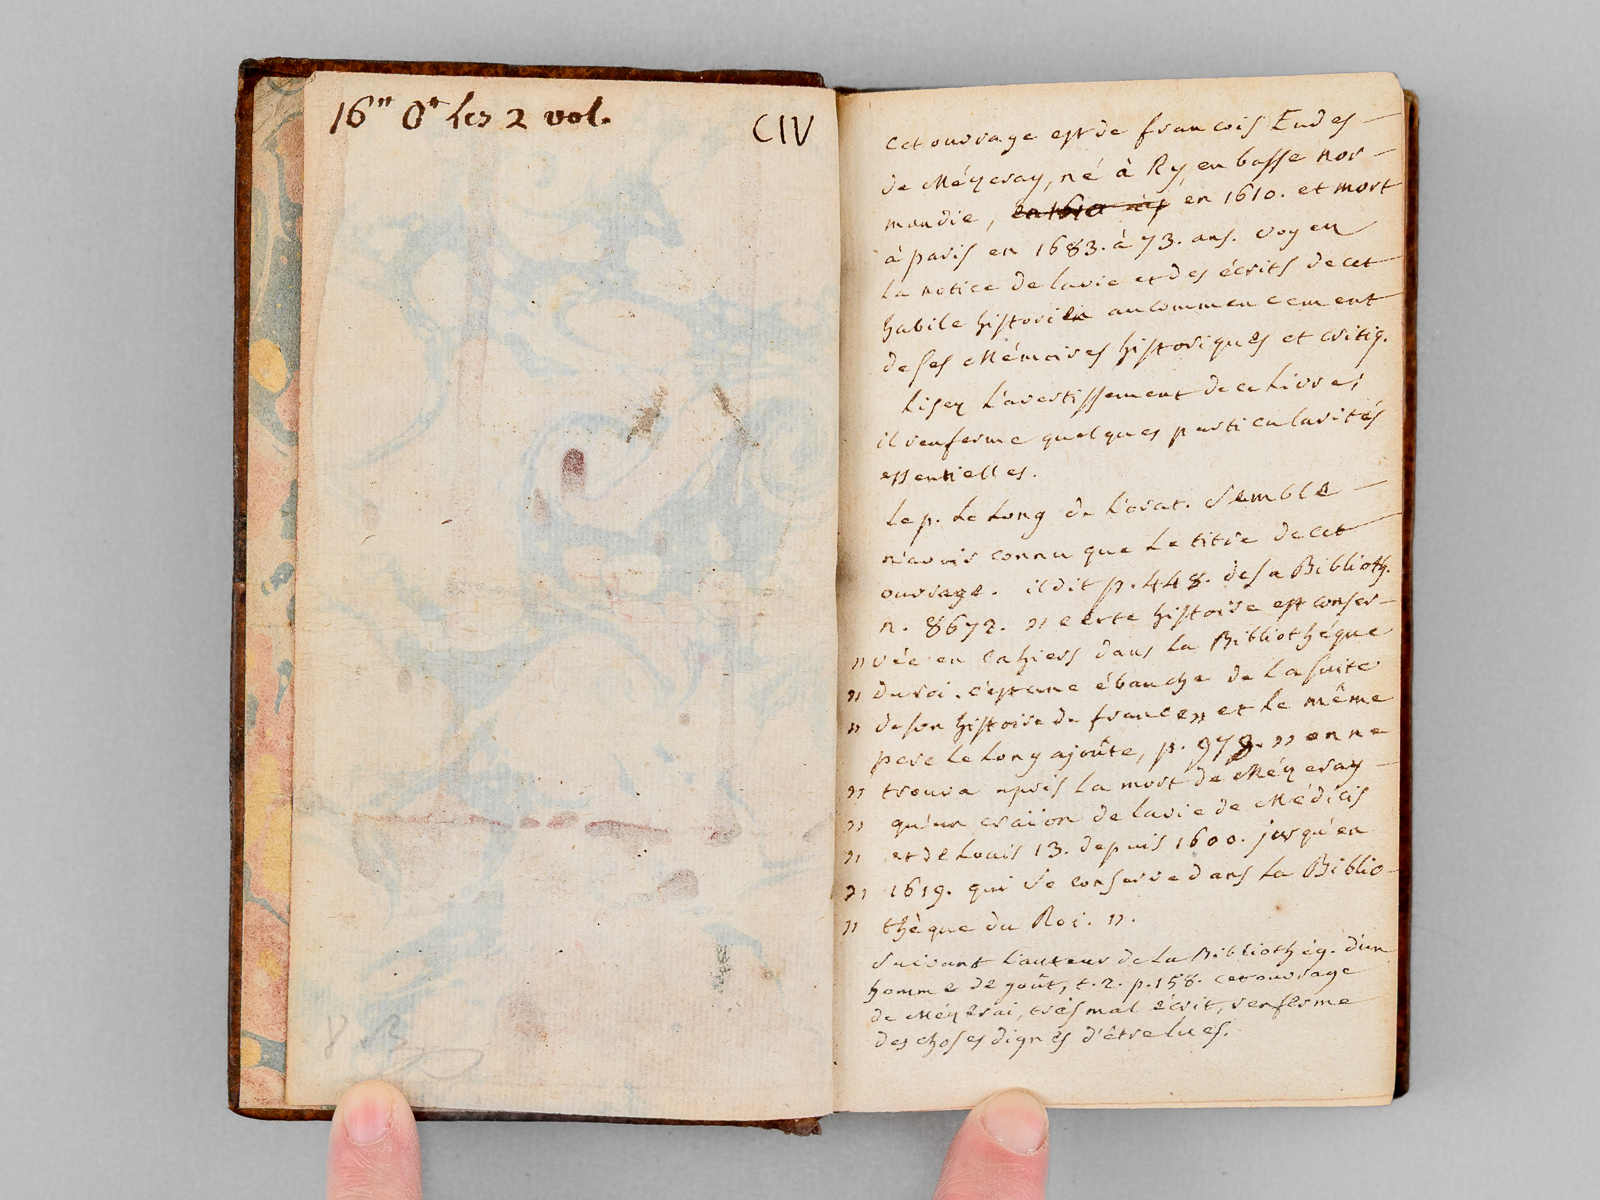 16" 0ˢ les 2 vol.
CIV
cet ouvrage est de francois Eudes
de Mézeray, né à Ry en basse nor-
mandie, en 1610. et mort
à paris en 1683. à 73. ans. voyez
la notice de la vie et des écrits de cet
habile historien au commencement
de ses Mémoires historiques et critiq.
Lisez L'avertissement de ce Livre;
il renferme quelques particularités
essentielles.
Le p. Le Long de L'orat. semble
n'avoir connu que Le titre de cet
ouvrage. il dit p. 448. de sa Biblioth.
n. 8672. " cette histoire est conser-
" vée en cahiers dans La Bibliothéque
" du roi. c'est une ébauche de La suite
" de son histoire de france " et Le même
pere Le Long ajoûte, p. 979. " on ne
" trouva après La mort de Mézeray
" qu'un craïon de la vie de Médicis
" et de Louis 13. depuis 1600. jusqu'en
" 1619. qui se conserve dans La Biblio-
" thèque du Roi. ".
Suivant L'auteur de La Bibliothéq. d'un
homme de goût, t. 2. p. 158. cet ouvrage
de Mézerai, très mal écrit, renferme
des choses dignes d'être lues.